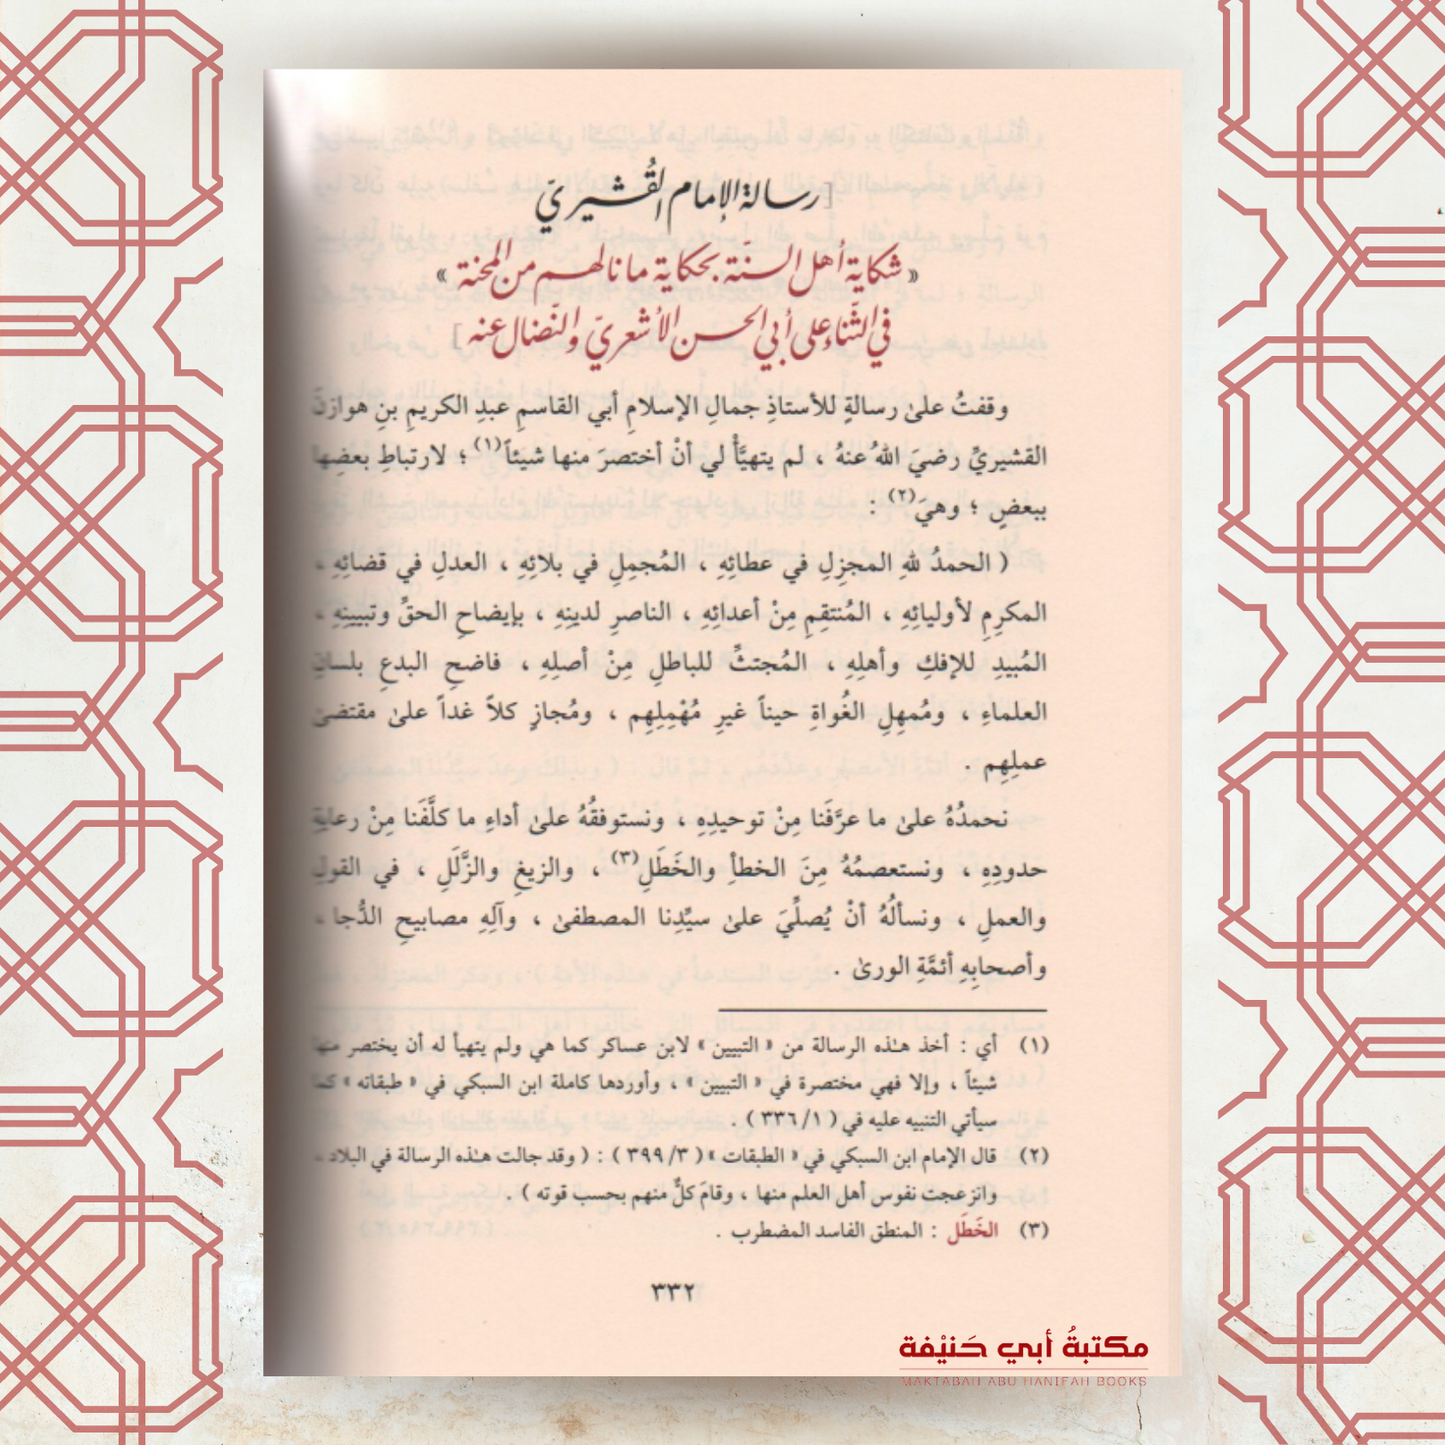 [ رسالة الإمام القُشيريّ
« شكاية أهل السنّة بحكاية ما نالهم من المحنة »
في الثّناء على أبي الحسن الأشعريّ والنّضال عنه ]
وقفتُ علىٰ رسالةٍ للأستاذِ جمالِ الإسلامِ أبي القاسمِ عبدِ الكريمِ بنِ هوازنَ
القشيريِّ رضيَ اللهُ عنهُ ، لم يتهيَّأْ لي أنْ أختصرَ منها شيئاً(١) ؛ لارتباطِ بعضِها
ببعضٍ ؛ وهيَ(٢) :
( الحمدُ للهِ المجزِلِ في عطائِهِ ، المُجمِلِ في بلائِهِ ، العدلِ في قضائِهِ ،
المكرِمِ لأوليائِهِ ، المُنتقِمِ مِنْ أعدائِهِ ، الناصرِ لدينِهِ ، بإيضاحِ الحقِّ وتبيينِهِ ،
المُبيدِ للإفكِ وأهلِهِ ، المُجتثِّ للباطلِ مِنْ أصلِهِ ، فاضحِ البدعِ بلسانِ
العلماءِ ، ومُمهِلِ الغُواةِ حيناً غيرِ مُهْمِلِهِم ، ومُجازٍ كلاً غداً علىٰ مقتضىٰ
عملِهِم .
نحمدُهُ علىٰ ما عرَّفَنا مِنْ توحيدِهِ ، ونستوفقُهُ علىٰ أداءِ ما كلَّفَنا مِنْ رعايةِ
حدودِهِ ، ونستعصمُهُ مِنَ الخطأِ والخَطَلِ(٣) ، والزيغِ والزَّلَلِ ، في القولِ
والعملِ ، ونسألُهُ أنْ يُصلِّيَ علىٰ سيِّدِنا المصطفىٰ ، وآلِهِ مصابيحِ الدُّجا ،
وأصحابِهِ أئمَّةِ الورىٰ .
(١) أي : أخذ هـٰذه الرسالة من « التبيين » لابن عساكر كما هي ولم يتهيأ له أن يختصر منها
شيئاً ، وإلا فهي مختصرة في « التبيين » ، وأوردها كاملة ابن السبكي في « طبقاته » كما
سيأتي التنبيه عليه في ( ١/ ٣٣٦ ) .
(٢) قال الإمام ابن السبكي في « الطبقات » ( ٣/ ٣٩٩ ) : ( وقد جالت هـٰذه الرسالة في البلاد ،
وانزعجت نفوس أهل العلم منها ، وقامَ كلٌّ منهم بحسب قوته ) .
(٣) الخَطَل : المنطق الفاسد المضطرب .
٣٣٢
مكتبةُ أبي حَنيْفة
MAKTABAH ABU HANIFAH BOOKS